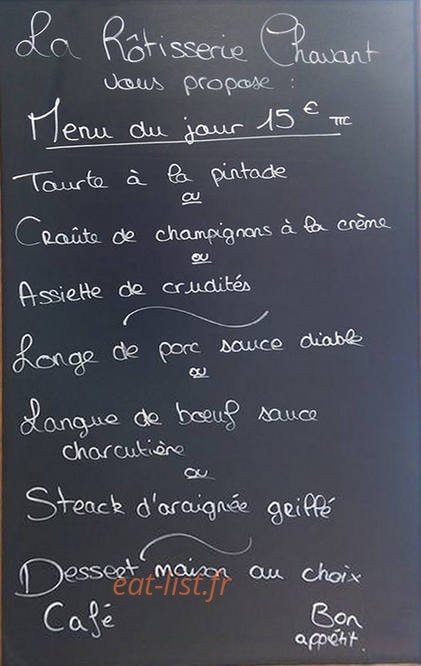 La Rôtisserie Chavant
vous propose :
Menu du jour 15 € TTC
Tourte à la pintade
ou
Croûte de champignons à la crème
ou
Assiette de crudités
Longe de porc sauce diable
ou
Langue de boeuf sauce
charcutière
ou
Steack d'araignée griffé
Dessert maison au choix
eat-list.fr
Café Bon
appétit.